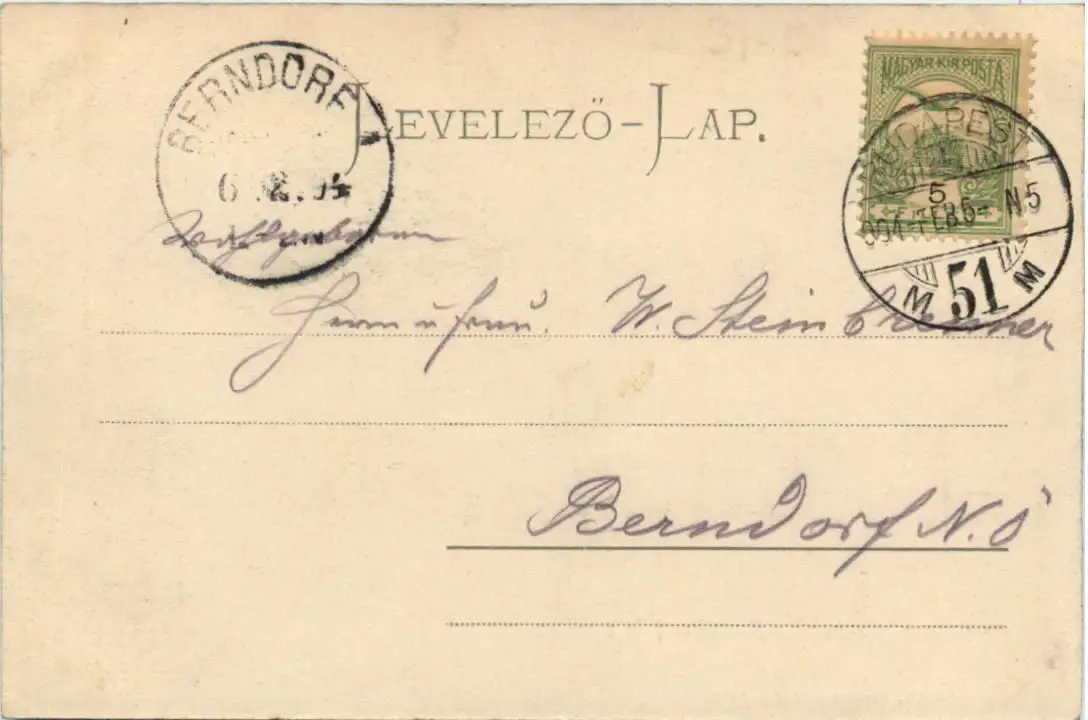 LEVELEZŐ-LAP.
MAGYAR·KIR·POSTA
BERNDORF 1
6. 2. 04
BUDAPEST
5
904 FEB 5 - N 5
M 51 M
Wohlgeboren
Herrn u Frau. W. Steinbrenner
Berndorf N. Ö